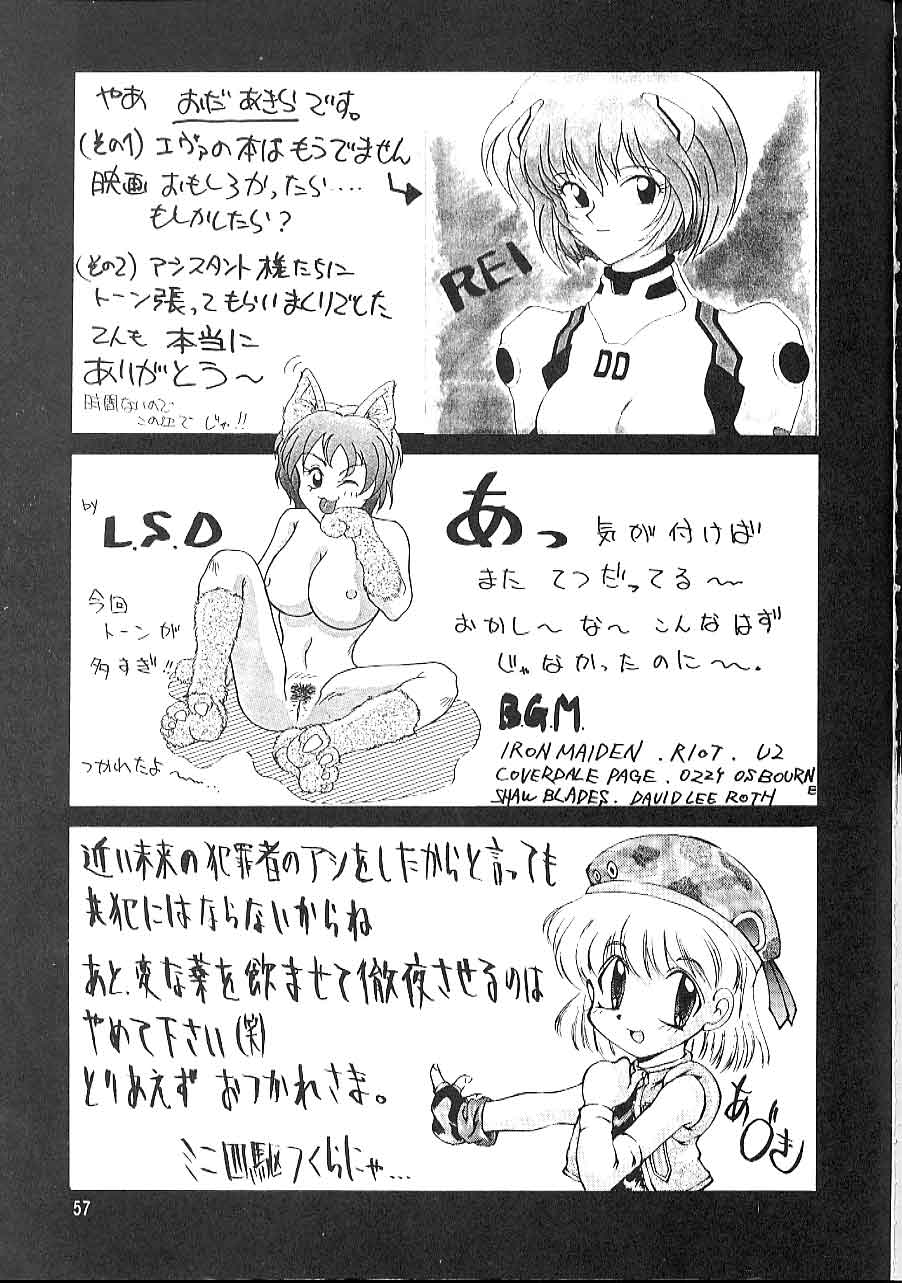 やあ おだあきらです。
(その1) エヴァの本はもうでません
映画 おもしろかったら‥‥
もしかしたら?
(その2) アシスタント様たちに
トーン張ってもらいまくりでした
てんも 本当に
ありがとう〜
時間ないので
この辺で じゃ!!
REI
00
by
L.S.D
今回
トーンが
多すぎ!!
つかれたよ〜
あっ 気が付けば
また てつだってる〜
おかし〜な〜 こんなはず
じゃなかったのに〜.
B.G.M.
IRON MAIDEN . RIOT . U2
COVERDALE PAGE . OZZY OSBOURNE
SHAW BLADES . DAVID LEE ROTH
近い未来の犯罪者のアシをしたからと言っても
共犯にはならないからね
あと、変な薬を飲ませて徹夜させるのは
やめて下さい(笑)
とりあえず おつかれさま。
ミニ四駆つくらにゃ…
あづき
57